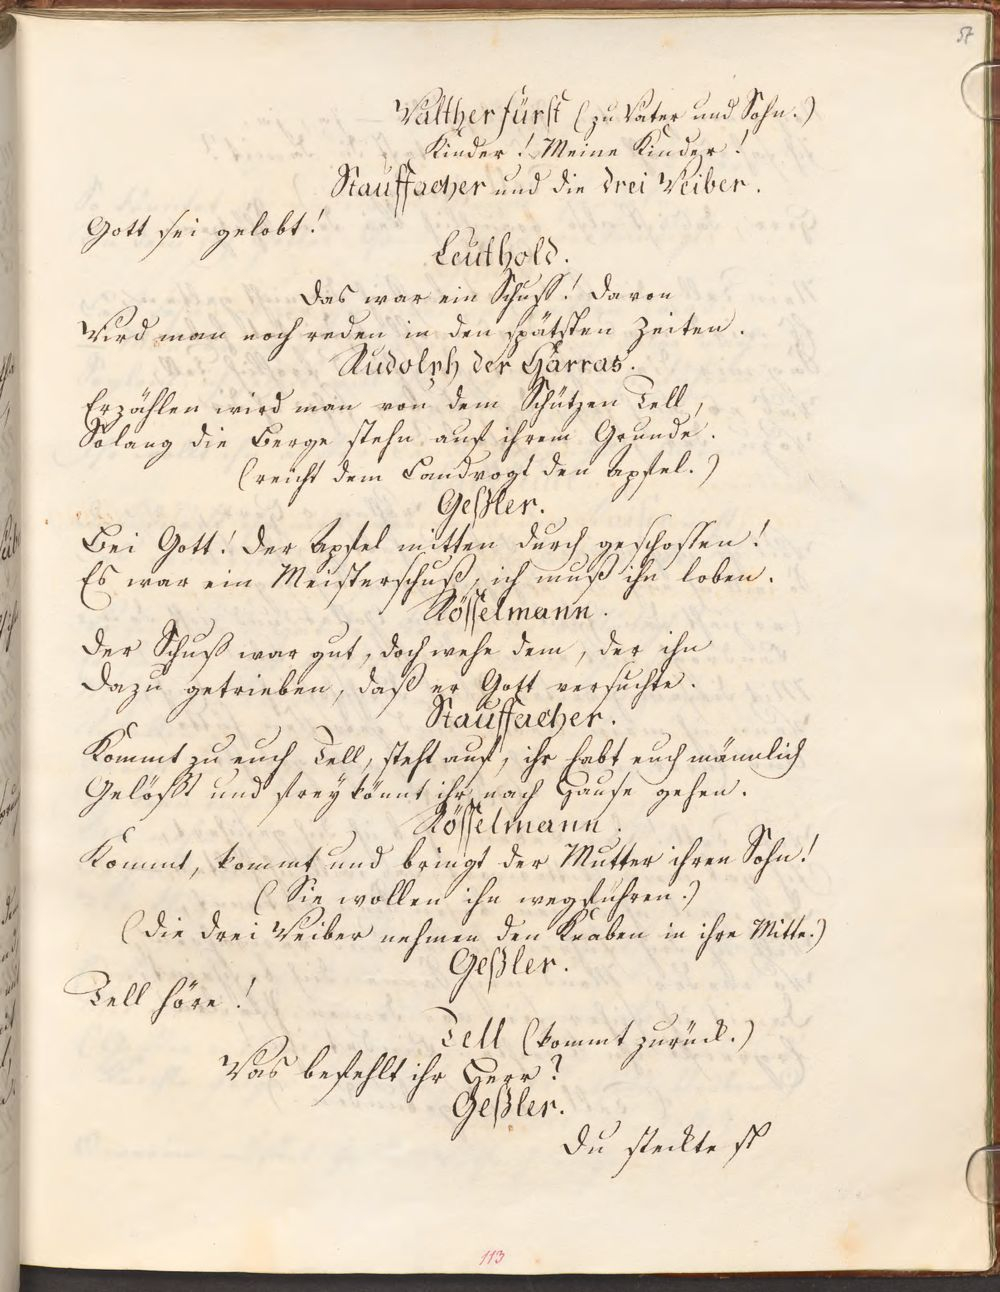 57
Walther Fürst (zu Vater und Sohn.)
Kinder! Meine Kinder!
Stauffacher und die drei Weiber.
Gott sei gelobt!
Leuthold.
Das war ein Schuss! Davon
Wird man noch reden in den spätsten Zeiten.
Rudolph der Harras.
Erzählen wird man von dem Schützen Tell,
Solang die Berge stehn auf ihrem Grunde.
(reicht dem Landvogt den Apfel.)
Geßler.
Bei Gott! Der Apfel mitten durch geschossen!
Es war ein Meisterschuß, ich muß ihn loben.
Rösselmann.
Der Schuß war gut, doch wehe dem, der ihn
Dazu getrieben, daß er Gott versuchte.
Stauffacher.
Kommt zu euch Tell, steht auf, ihr habt euch männlich
Gelößt und frey könnt ihr nach Hause gehen.
Rösselmann.
Kommt, kommt und bringt der Mutter ihren Sohn!
(Sie wollen ihn wegführen.)
(Die drei Weiber nehmen den Knaben in ihre Mitte.)
Geßler.
Tell höre!
Tell (kommt zurück.)
Was befehlt ihr Herr?
Geßler.
Du stecktest
113